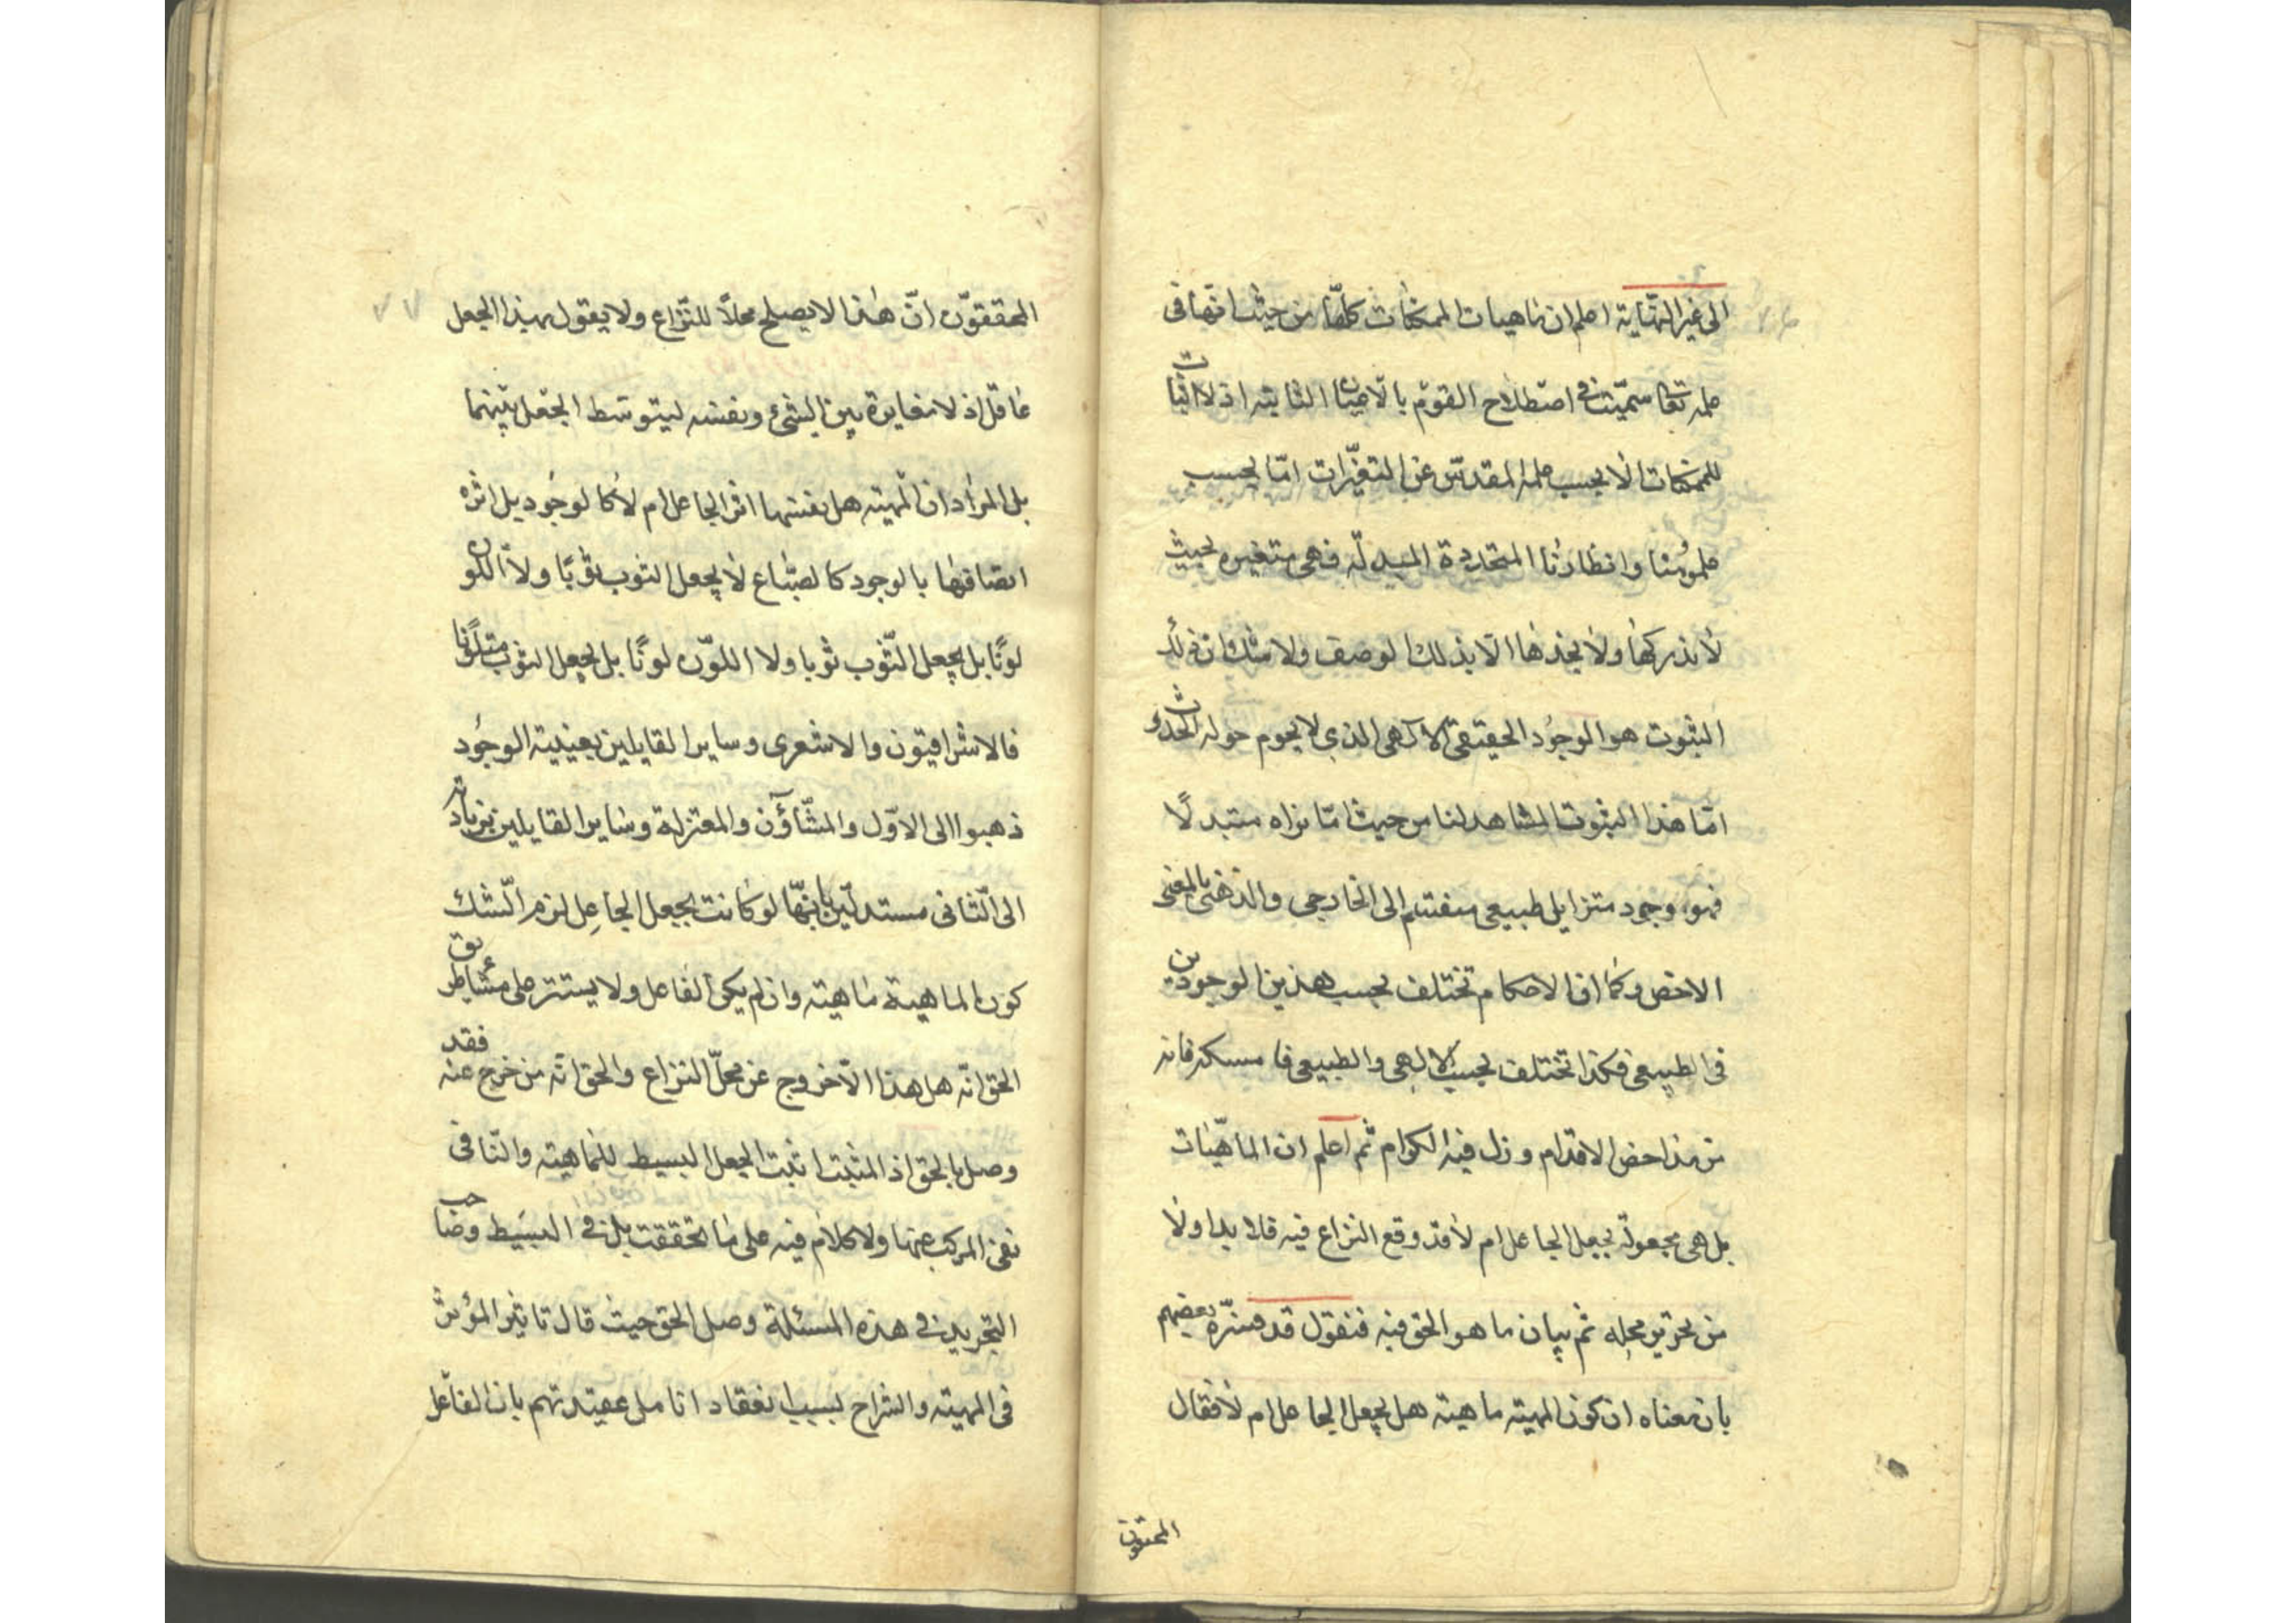 الى غير النهاية اعلم ان ماهيات الممكنات كلها من حيث انها فى
علمه تعا سميت فى اصطلاح القوم بالاعيان الثابتة اذ لا اثبات
للممكنات الا بحسب علمه المقدس عن التغيرات اما بحسب
علومنا وانظارنا المتجددة المبدلة فهى متغيره بحيث
لا ندركها ولا نجدها الا بذلك الوصف ولا شك ان ذلك
الثبوت هو الوجود الحقيقى الالهى الذى لا يحوم حوله الحدوث
اما هذا الثبوت المشاهد لنا من حيث اما نراه متبدلا
فهو وجود متزايل طبيعى منقسم الى الخارجى والذهنى بالمعنى
الاخص وكما ان الاحكام تختلف بحسب هذين الوجودين
فى الطبيعى فكذا تختلف بحسب الالهى والطبيعى فا مسكه فانه
من مداحض الاقدام وزل فيه الكرام ثم اعلم ان الماهيات
بل هى مجعولة بجعل الجاعل ام لا قد وقع النزاع فيه فلا بد اولا
من تحرير محله ثم بيان ما هو الحق فيه فنقول قد فسره بعضهم
بان معناه ان كون المهية ماهية هل بجعل الجاعل ام لا فقال
المحققون
المحققون ان هذا لا يصلح محلا للنزاع ولا يقول بهذا الجعل
عاقل اذ لا مغايرة بين الشئ ونفسه ليتوسط الجعل بينهما
بل المراد ان المهية هل نفسها اثر الجاعل ام لا كالوجود بل اثره
اتصافها بالوجود كالصباغ لا يجعل الثوب ثوبا ولا اللون
لونا بل يجعل الثوب ثوبا ولا اللون لونا بل يجعل الثوب متلونا
فالاشراقيون والاشعرى وساير القايلين بعينية الوجود
ذهبوا الى الاول والمشاؤن والمعتزلة وساير القايلين بزيادته
الى الثانى مستدلين بانها لو كانت بجعل الجاعل لزم الشك
كون الماهية ماهية وان لم يكن الفاعل ولا يستتر على مشاطر
الحق انه هل هذا الا خروج عن محل النزاع والحق انه من خرج عنه فقد
وصل بالحق اذ المثبت اثبت الجعل البسيط للماهية والنافى
نفى المركب عنها ولا كلام فيه على ما تحققت بل فى البسيط وصاحب
التجريد فى هذه المسئلة وصل الحق حيث قال تاثير المؤثر
فى المهية والشراح لسبب انعقاد انامل عقيدتهم بان الفاعل